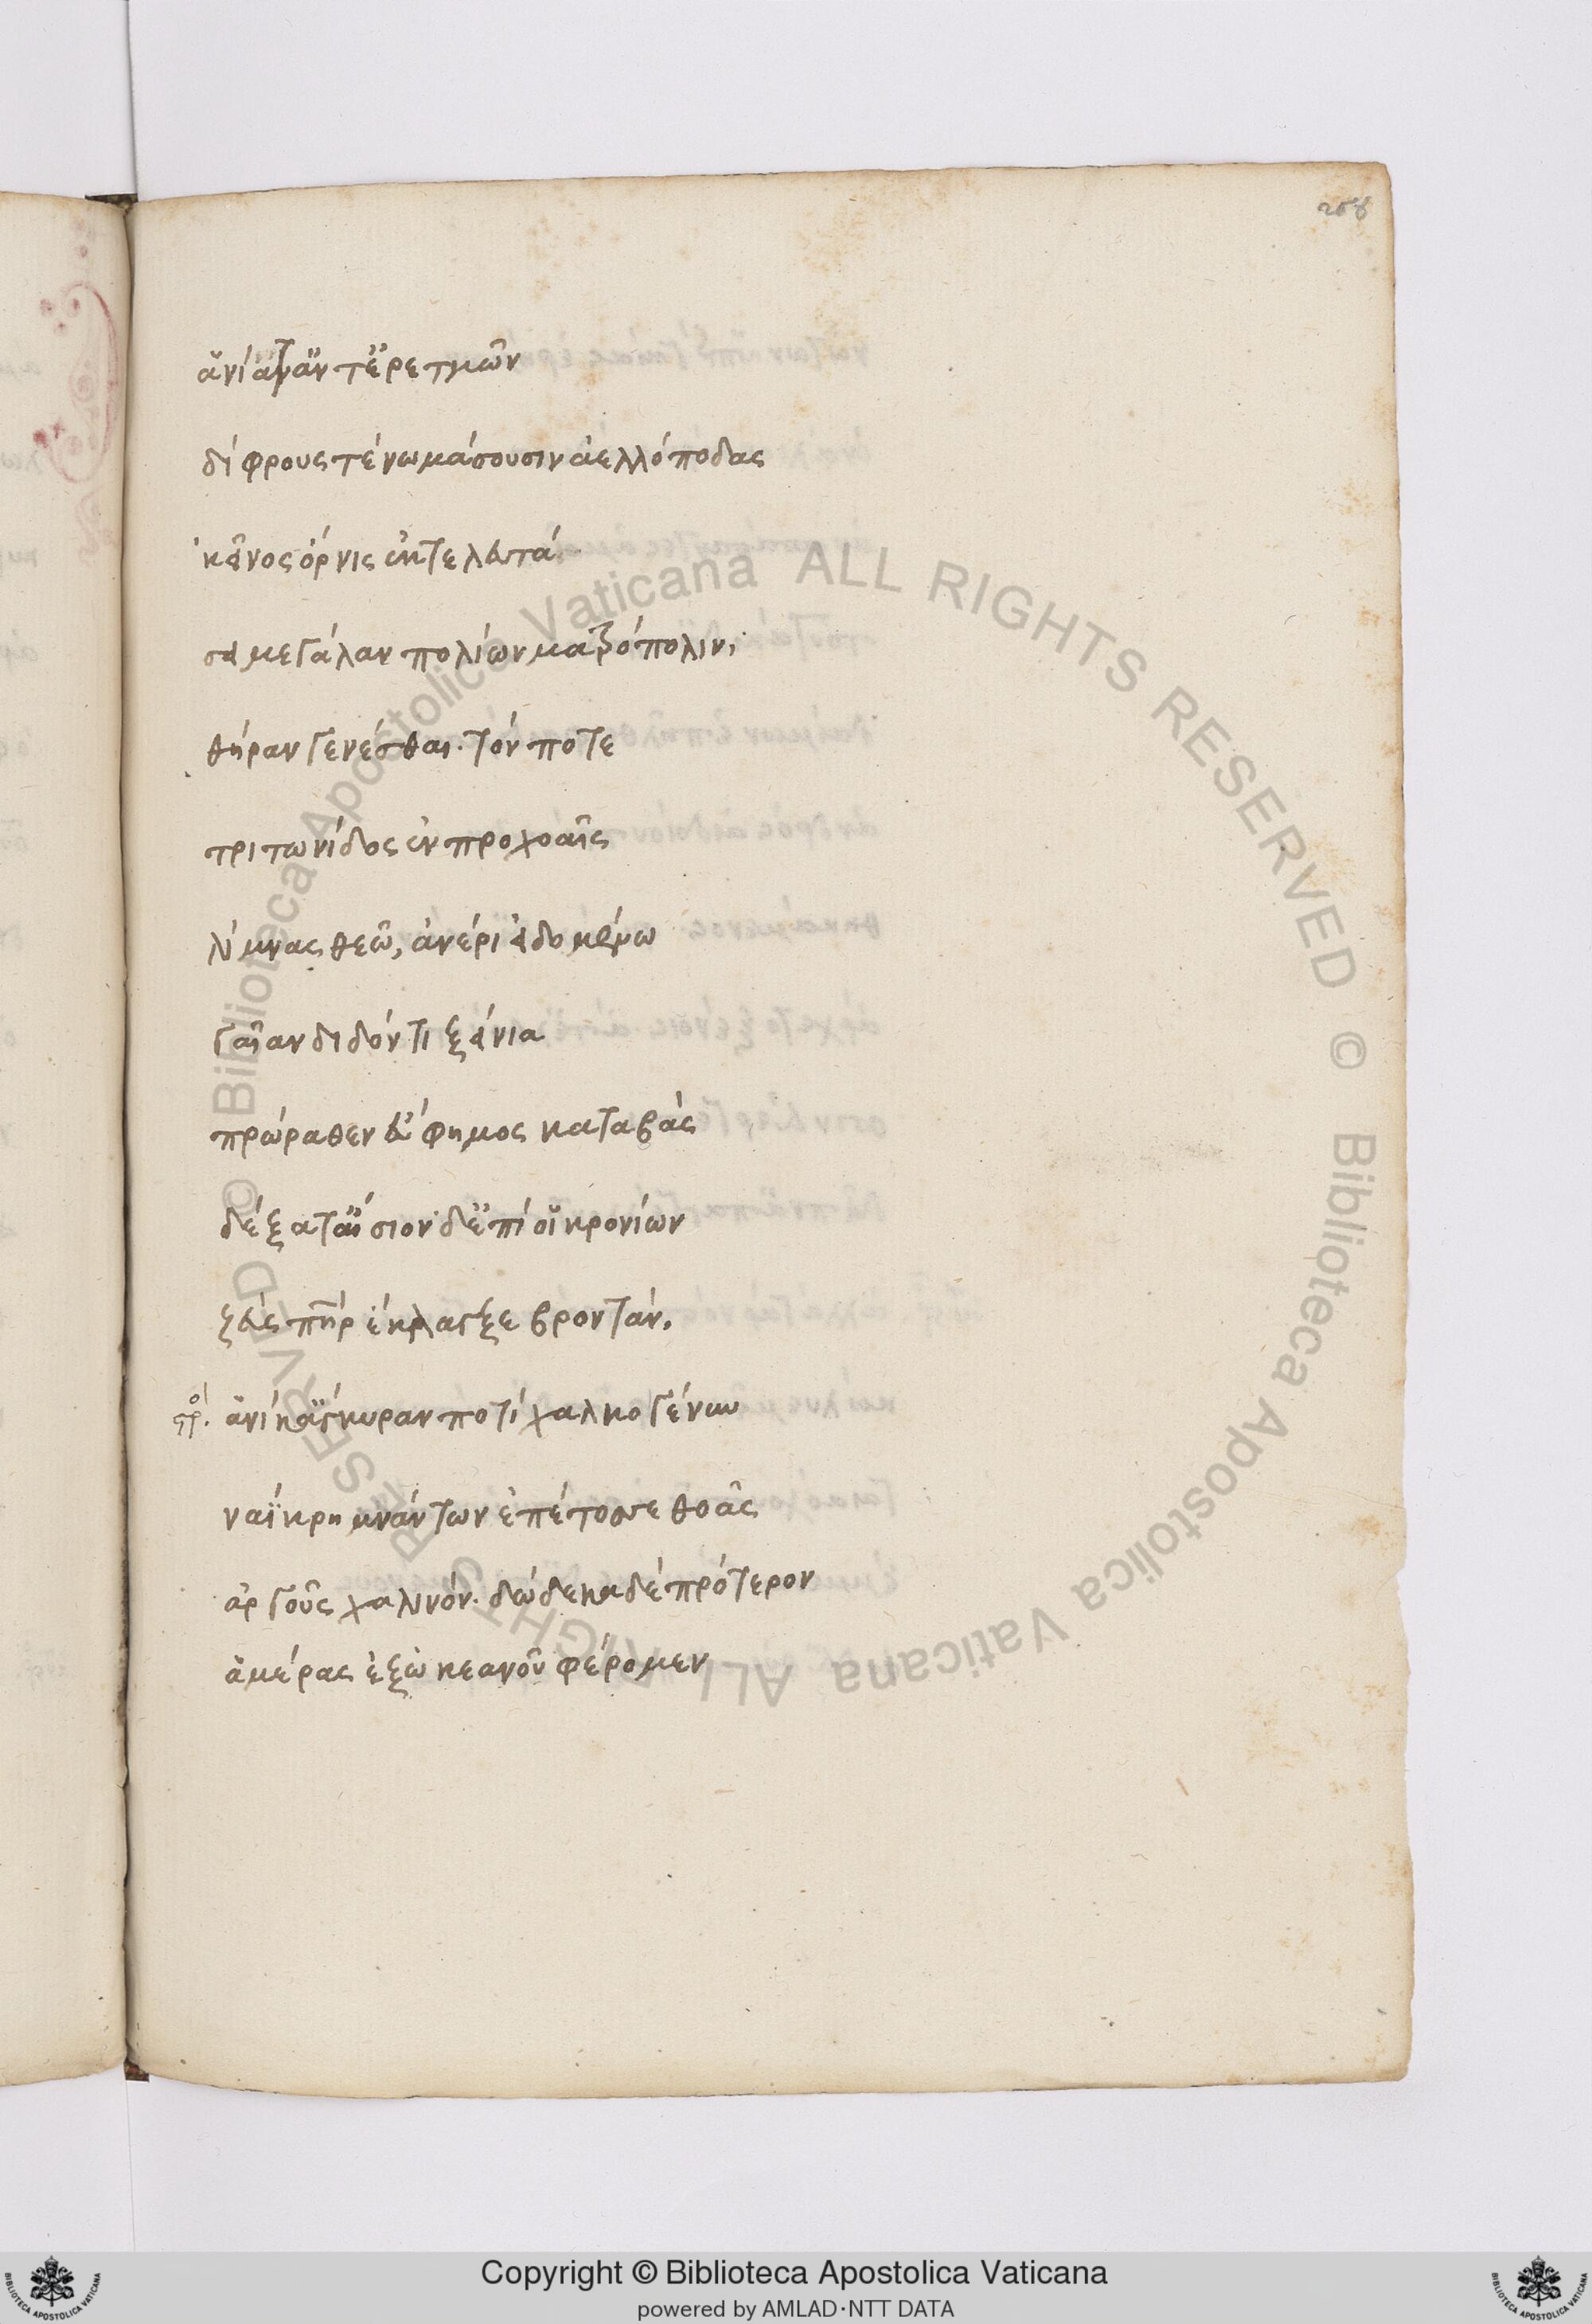 258
ἁνίαν τἂν τ' ἐρετμῶν
δίφρους τὲ νωμάσουσιν ἀελλόποδας
κεῖνος ὄρνις ἐκτελευτά
σει μεγάλαν πολίων ματρόπολιν,
θήραν γενέσθαι· τόν ποτε
τριτωνίδος ἐν προχοαῖς
λίμνας θεῶ, ἀνέρι εἰδομένω
γαῖαν διδόντι ξείνια
πρώραθεν εὔφημος καταβὰς
δέξατ' αἴσιον δ' ἐπί οἱ κρονίων
ζεὺς πὴρ ἔκλαγξε βροντάν.
ἁνίκ' ἄγκυραν ποτὶ χαλκόγενυν
ναῒ κρημνάντων ἐπέτοσσε θοᾶς
ἀργοῦς χαλινόν. δώδεκα δὲ πρότερον
ἁμέρας ἐξ ὠκεανοῦ φέρομεν
© Biblioteca Apostolica Vaticana ALL RIGHTS RESERVED
© Biblioteca Apostolica Vaticana ALL RIGHTS RESERVED
Copyright © Biblioteca Apostolica Vaticana
powered by AMLAD·NTT DATA
BIBLIOTECA APOSTOLICA VATICANA
BIBLIOTECA APOSTOLICA VATICANA